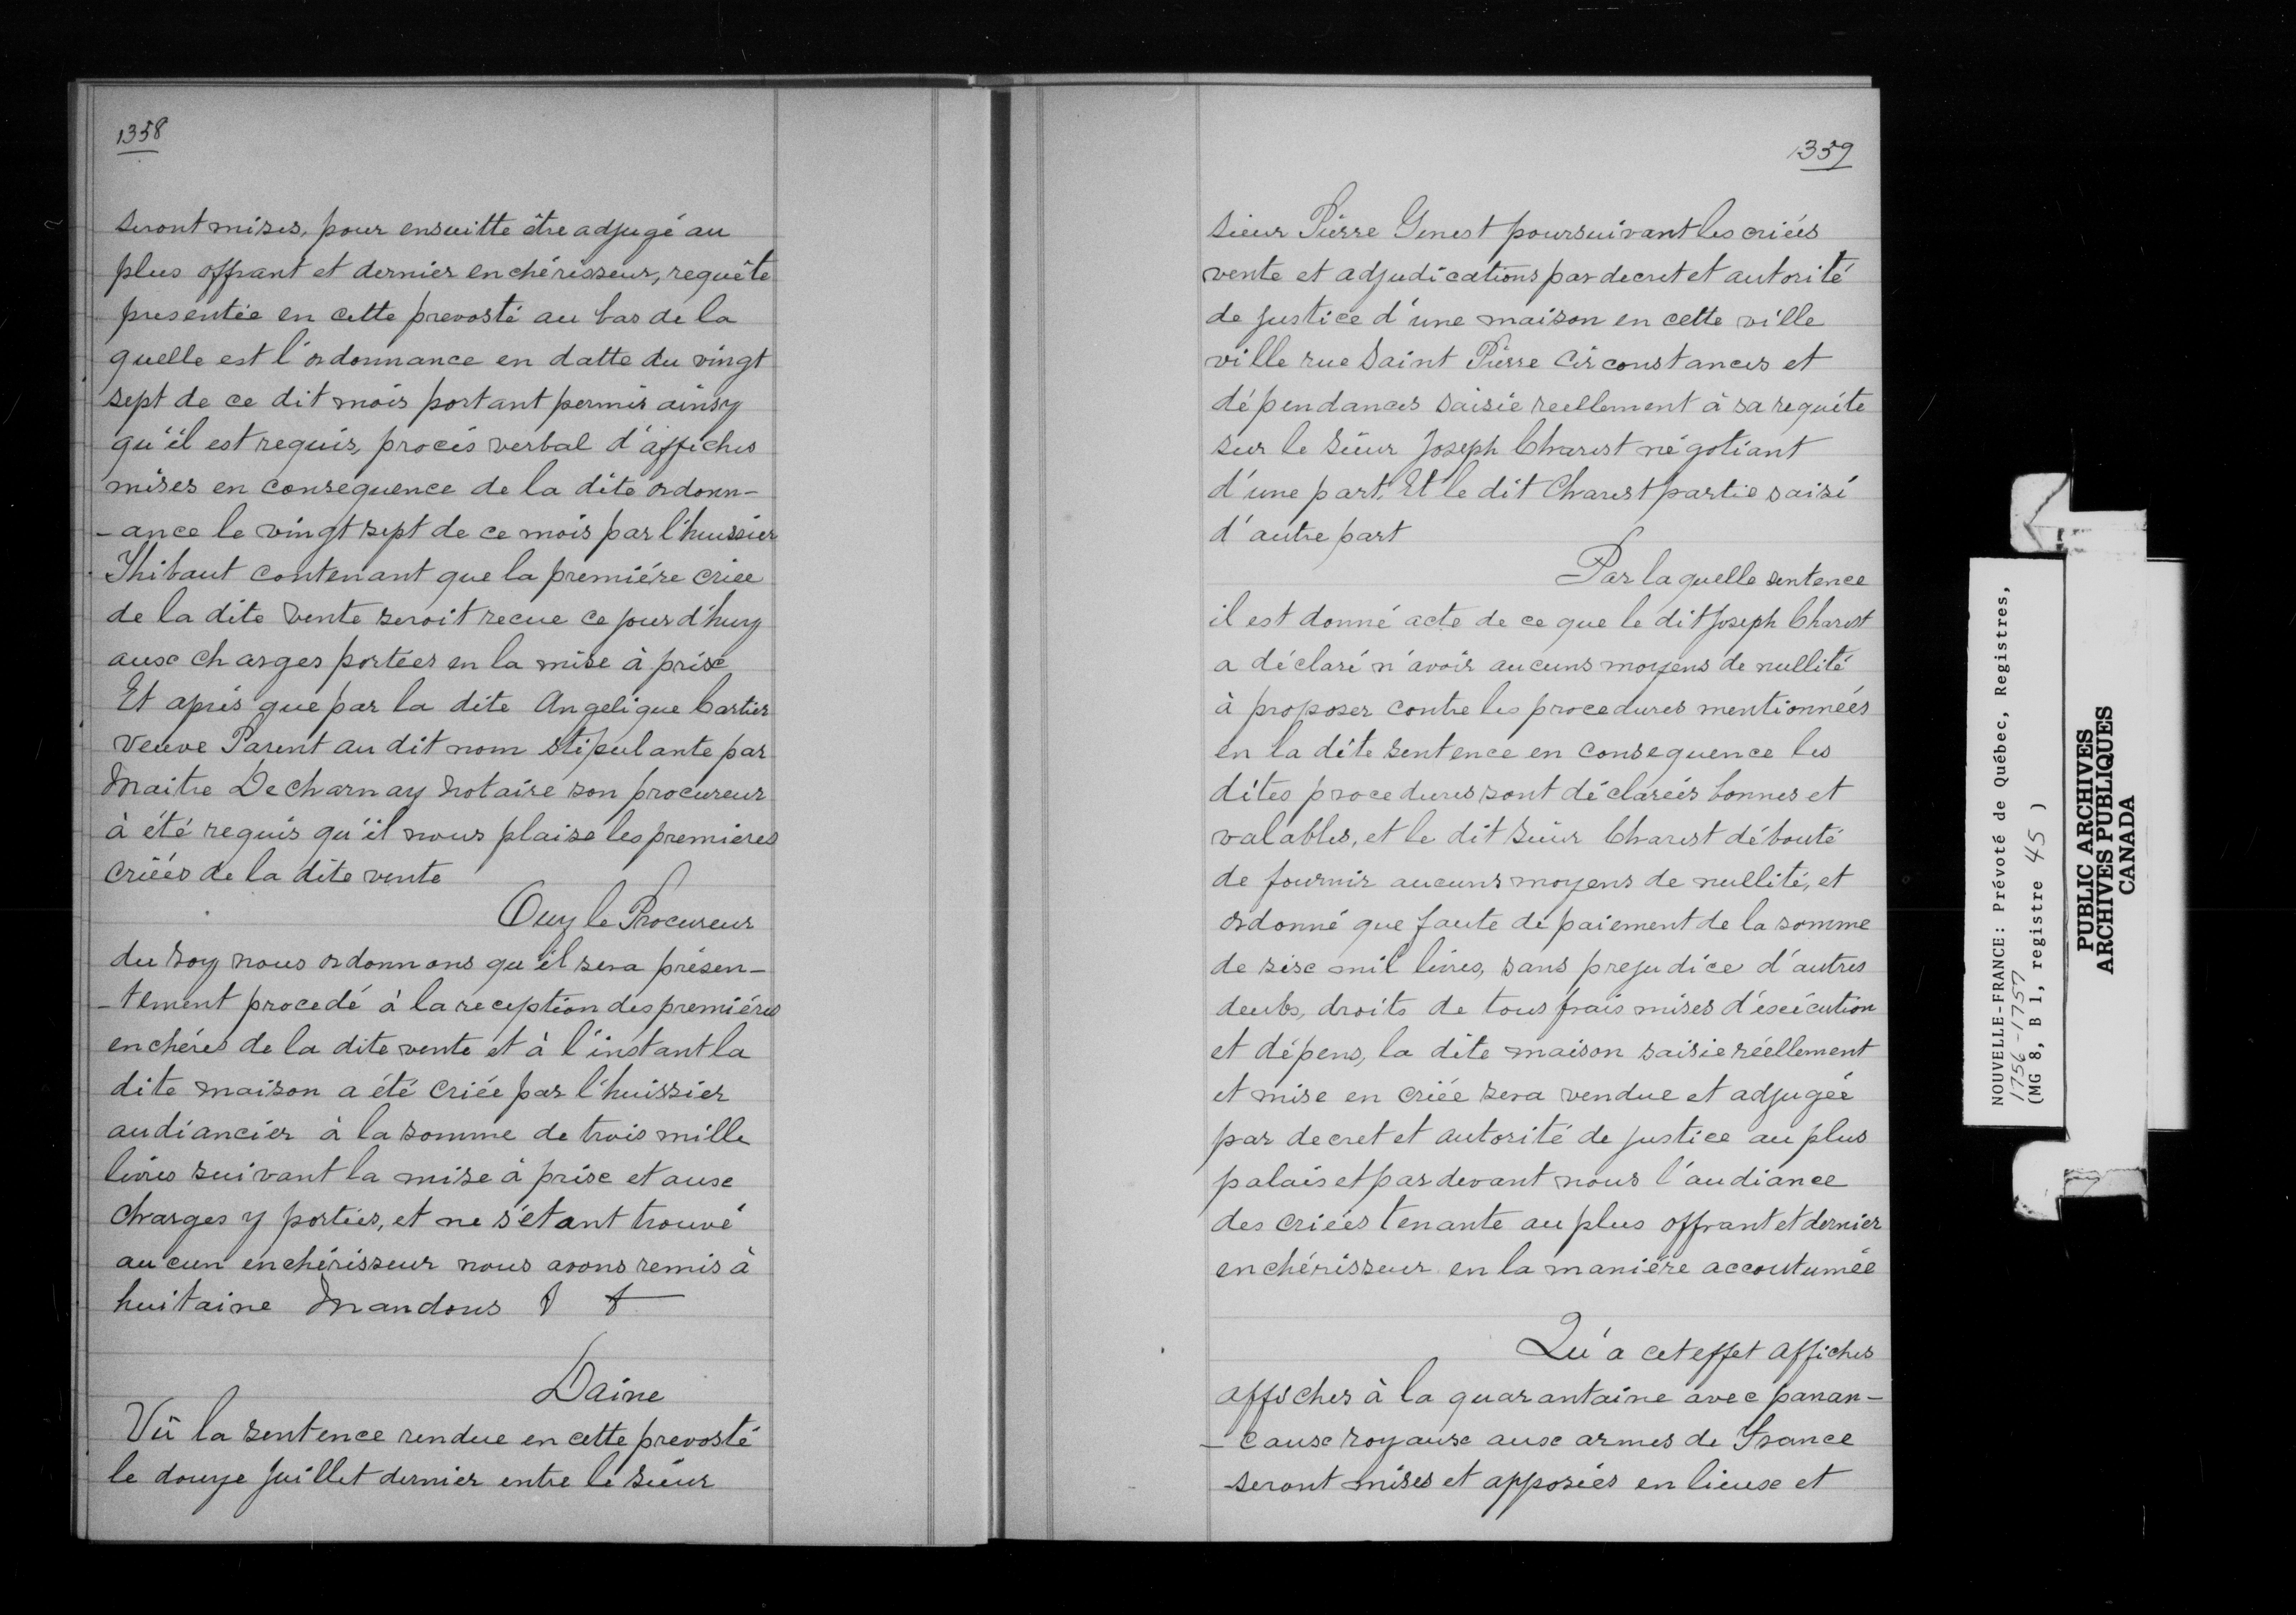 1358
seront mises, pour ensuitte être adjugé au
plus offrant et dernier enchérisseur, requête
presentée en cette prevosté au bas de la
quelle est l'ordonnance en datte du vingt
sept de ce dit mois portant permis ainsy
qu'il est requis, procés verbal d'affiches
mises en consequence de la dite ordonn-
-ance le vingt sept de ce mois par l'huissier
Thibaut contenant que la premiére criee
de la dite vente seroit recue ce jourd'huy
aux charges portées en la mise à prix
Et aprés que par la dite Angelique Cartier
veuve Parent au dit nom stipulante par
Maitre Decharnay Notaire son procureur
à été requis qu'il nous plaise les premieres
criées de la dite vente
Ouy le Procureur
du roy nous ordonnons qu'il sera présen-
-tement procedé à la reception des premiéres
enchéres de la dite vente et à l'instant la
dite maison a été criée par l'huissier
audiancier à la somme de trois mille
livres suivant la mise à prix et aux
charges y portées, et ne s'étant trouvé
aucun enchérisseur nous avons remis à
huitaine Mandons
Daine
Vû la sentence rendue en cette prevosté
le douze juillet dernier entre le sieur
1359
sieur Pierre Genest poursuivant les criées
vente et adjudications par decret et autorité
de justice d'une maison en cette ville
ville rue Saint Pierre circonstances et
dépendances saisie reellement à sa requéte
sur le sieur Joseph Charest négotiant
d'une part. Et le dit Charest partie saisi
d'autre part
Par laquelle sentence
il est donné acte de ce que le dit Joseph Charest
a déclaré n'avoir aucuns moyens de nullité
à proposer contre les procedures mentionnées
en la dite sentence en consequence les
dites procedures sont déclarées bonnes et
valables, et le dit sieur Charest débouté
de fournir aucuns moyens de nullité, et
ordonné que faute de paiement de la somme
de six mil livres, sans prejudice d'autres
deubs, droits de tous frais mises d'exécution
et dépens, la dite maison saisie réellement
et mise en criée sera vendue et adjugée
par decret et autorité de justice au plus
palais et par devant nous l'audiance
des criées tenante au plus offrant et dernier
enchérisseur en la maniére accoutumée
Qu'a cet effet affiches
affiches à la quarantaine avec panan-
-ceaux royaux aux armes de France
seront mises et apposées en lieux et
NOUVELLE-FRANCE: Prévoté de Québec, Registres,
1756-1757
(MG 8, B 1, registre 45)
PUBLIC ARCHIVES
ARCHIVES PUBLIQUES
CANADA